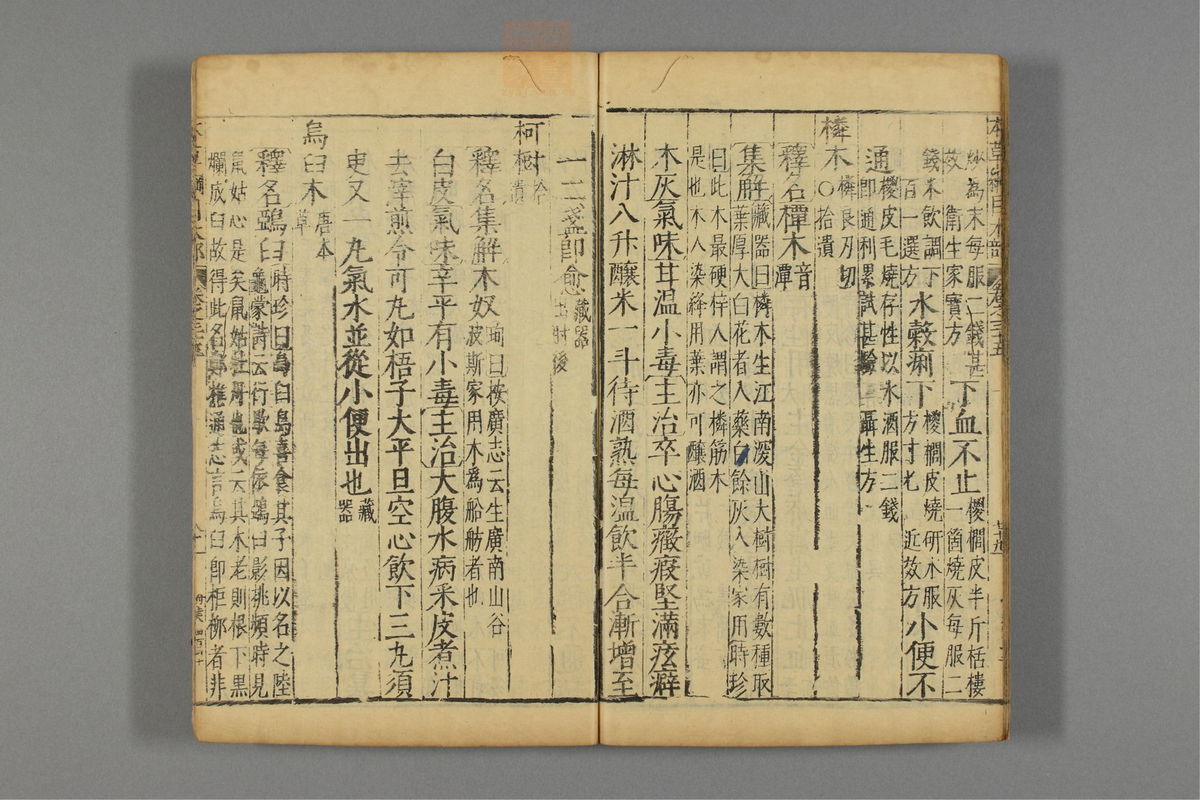 炒為末每服二錢甚
效 衛生家寶方
下血不止
椶櫚皮半斤栝樓
一箇燒灰每服二
錢米飲調下
百一選方
水穀痢下
椶櫚皮燒研水服
方寸匕 近效方
小便不
通
椶皮毛燒存性以水酒服二錢
即通利累試甚驗 攝生方
橉木
橉良刃切
○拾遺
釋名橝木
音
潭
集解
藏器曰橉木生江南深山大樹樹有數種取
葉厚大白花者入藥白餘灰入染家用時珍
曰此木最硬梓人謂之橉筋木
是也木入染絳用葉亦可釀酒
木灰氣味甘溫小毒主治卒心腸癥瘕堅滿痃癖
淋汁八升釀米一斗待酒熟每溫飲半合漸增至
一二盞即愈
藏器
出肘後
柯樹
拾
遺
釋名集解木奴
珣曰按廣志云生廣南山谷
波斯家用木為船舫者也
白皮氣味辛平有小毒主治大腹水病采皮煮汁
去滓煎令可丸如梧子大平旦空心飲下三丸須
臾又一丸氣水並從小便出也
藏
器
烏臼木
唐本
草
釋名鵶臼
時珍曰烏臼烏喜食其子因以名之陸
龜蒙詩云行歇每依鵶臼影挑頻時見
鼠姑心是矣鼠姑牡丹也或云其木老則根下黑
爛成臼故得此名鄭樵通志言烏臼即柜柳者非